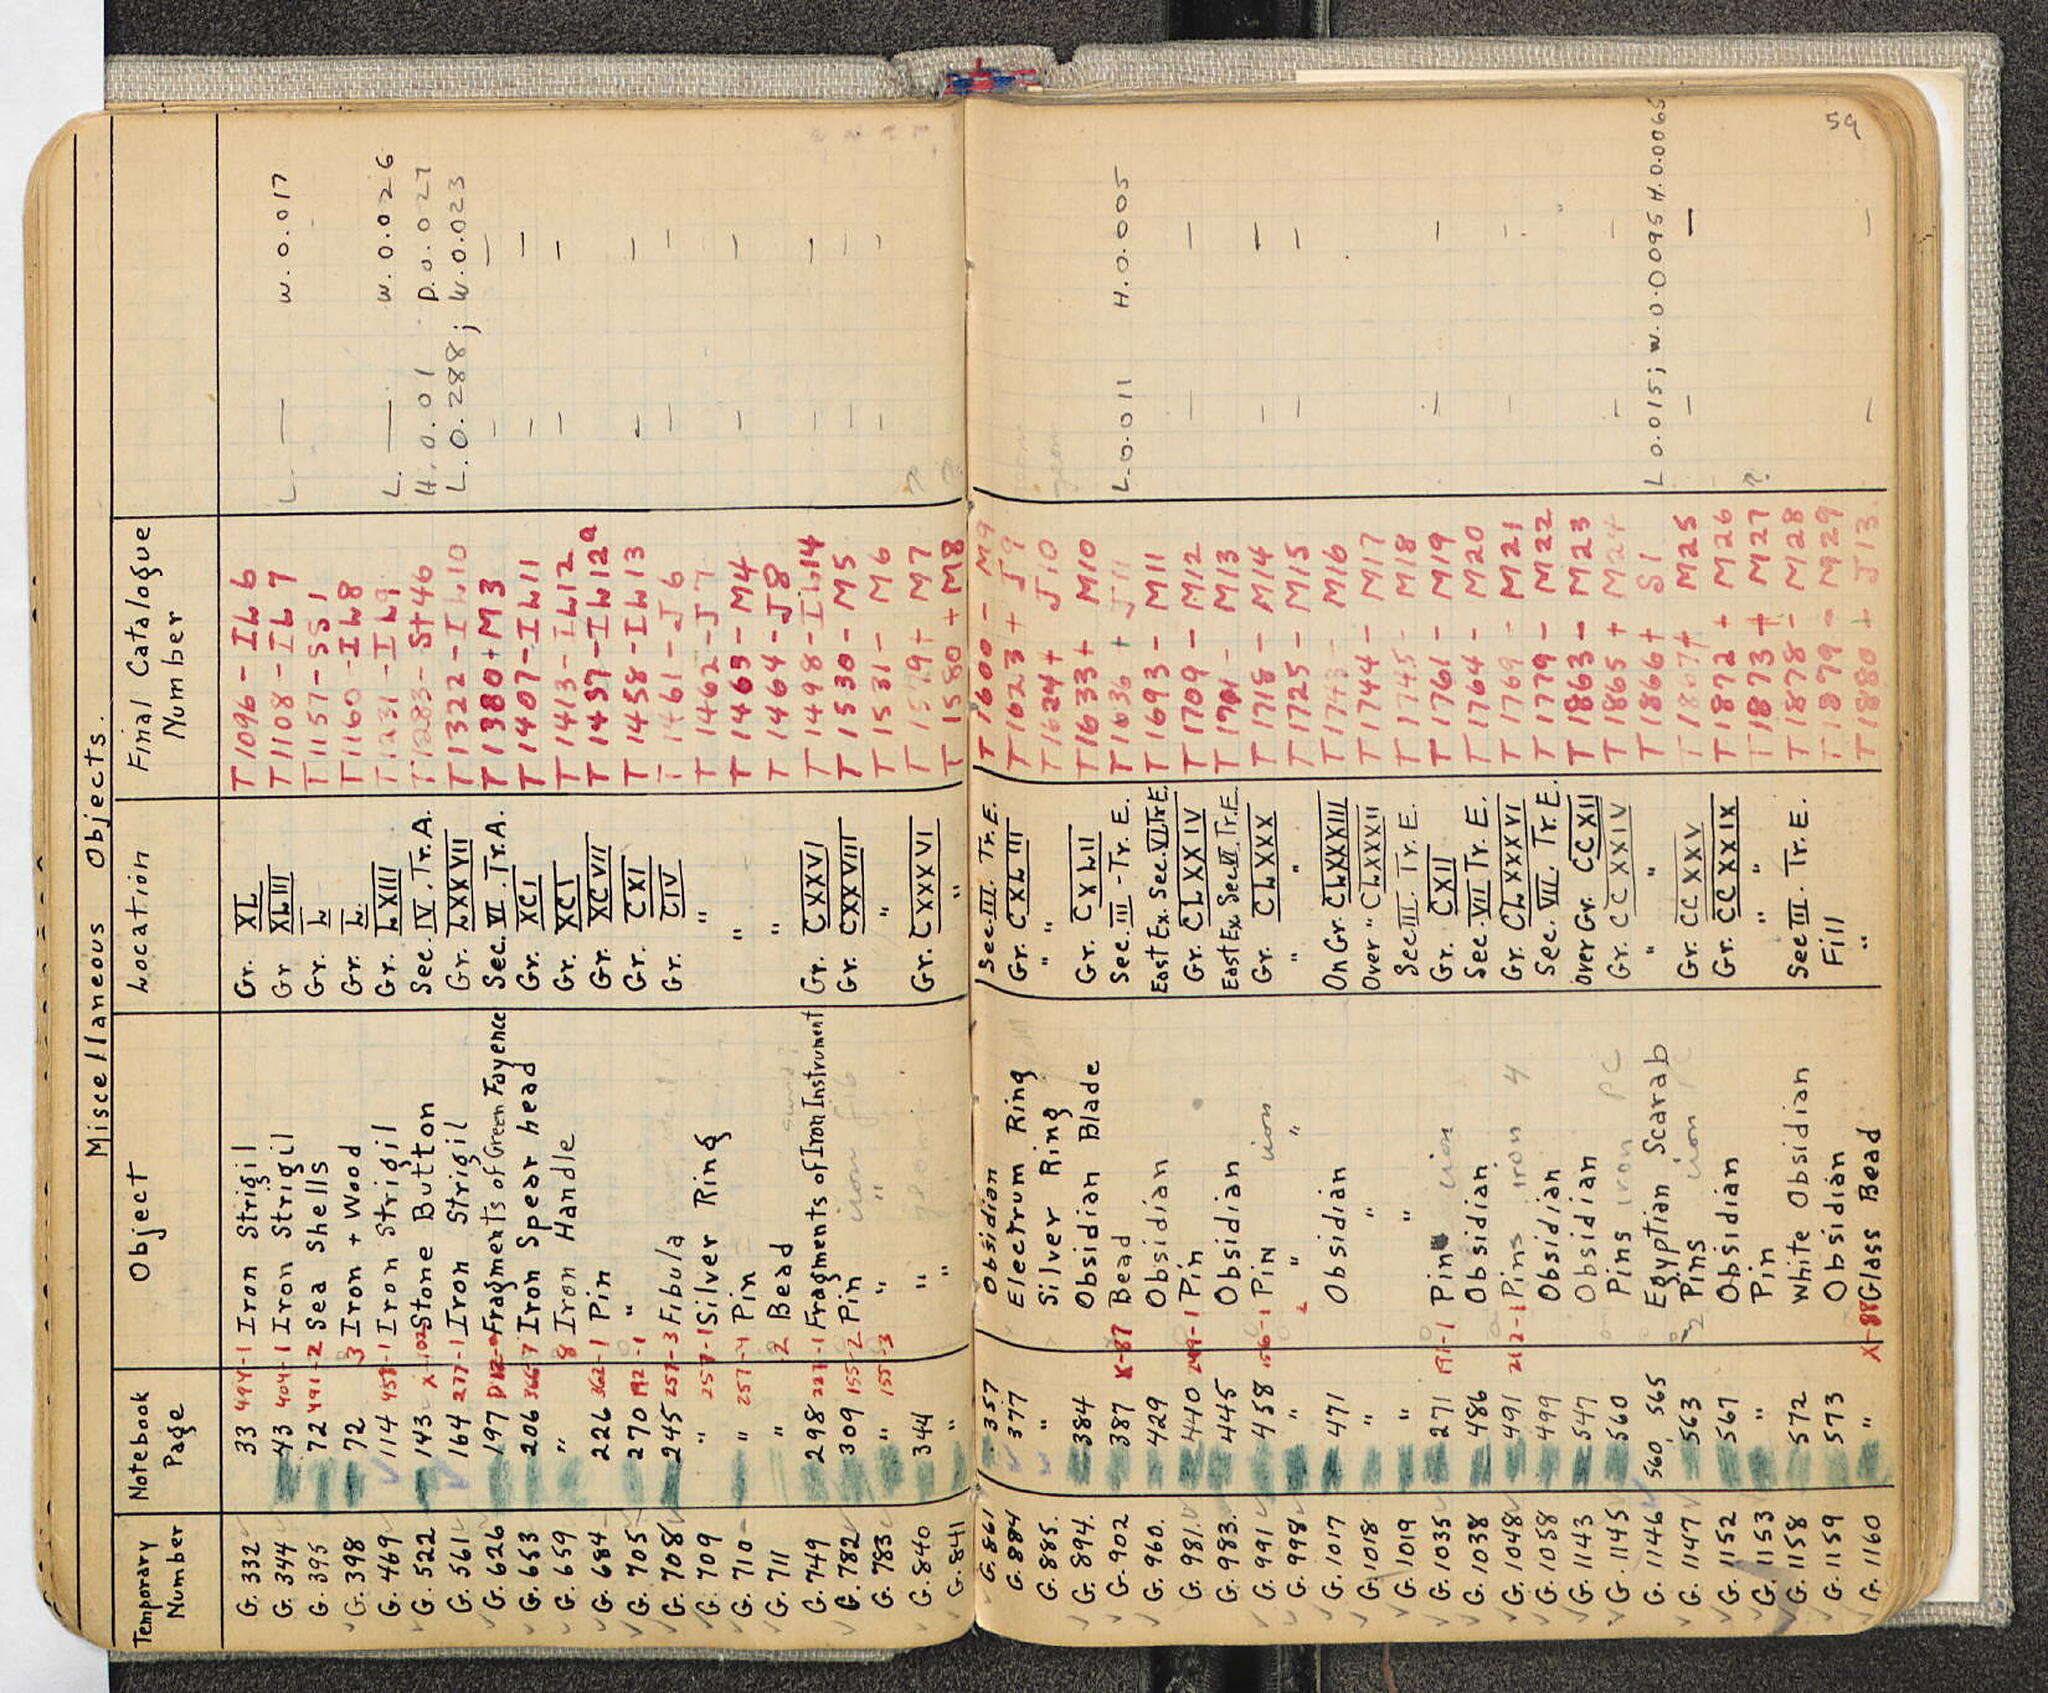 Miscellaneous Objects.
Temporary Number Notebook Page Object Location Final Catalogue Number
G. 332 33 494-1 Iron Strigil Gr. XL T 1096 - IL 6
G. 344 43 404-1 Iron Strigil Gr XLIII T 1108 - IL 7 L. — W. 0.017
G. 395 72 491-2 Sea Shells Gr. L T 1157 - SS 1
G. 398 72 3 Iron + Wood Gr. L. T 1160 - IL 8
G. 469 114 458-1 Iron Strigil Gr. LXIII T 1231 - IL 9 L. — W. 0.026
G. 522 143 X-102 Stone Button Sec. IV. Tr. A. T 1283 - St 46 H. 0.01 D. 0.027
G. 561 164 277-1 Iron Strigil Gr. LXXVII T 1322 - IL 10 L. 0.288; W. 0.023
G. 626 197 Fragments of Green Fayence Sec. VI. Tr. A. T 1380 + M 3 — —
G. 653 206 366-7 Iron Spear head Gr. XCI T 1407 - IL 11 — —
G. 659 " 8 Iron Handle Gr. XCI T 1413 - IL 12 — —
G. 684 226 362-1 Pin Gr. XCVII T 1437 - IL 12a
G. 705 270 192-1 " Gr. CXI T 1458 - IL 13 — —
G. 708 245 257-3 Fibula Gr. CIV T 1461 - J 6 — —
G. 709 " 257-1 Silver Ring " T 1462 - J 7
G. 710 " 257-4 Pin " T 1463 - M 4 — —
G. 711 " 2 Bead " T 1464 - J 8
G. 749 298 227-1 Fragments of Iron Instrument Gr. CXXVI T 1498 - IL 14 — —
G. 782 309 155-2 Pin iron Gr. CXXVIII T 1530 - M 5 — —
G. 783 " 155-3 " " " T 1531 - M 6 — —
G. 840 344 " Gr. CXXXVI T 1579 + M 7 ?
G. 841 " " " T 1580 + M 8 ?
59
G. 861 357 Obsidian Sec. III. Tr. E. T 1600 - M 9
G. 884 377 Electrum Ring Gr. CXLIII T 1623 + J 9
G. 885. " Silver Ring " T 1624 + J 10
G. 894. 384 Obsidian Blade Gr. CXLII T 1633 + M 10
G. 902 387 X-87 Bead Sec. III - Tr. E. T 1636 + J 11 L. 0.011 H. 0.005
G. 960. 429 Obsidian East Ex. Sec. VI Tr E. T 1693 - M 11
G. 981. 440 249-1 Pin Gr. CLXXIV T 1709 - M 12 — —
G. 983. 445 Obsidian East Ex. Sec. VI. Tr. E. M 13
G. 991 458 156-1 Pin iron Gr. CLXXX T 1718 - M 14 — —
G. 998 " 2 " " " T 1725 - M 15 — —
G. 1017 471 Obsidian On Gr. CLXXXIII T 1743 - M 16
G. 1018 " " Over " CLXXXII T 1744 - M 17
G. 1019 " " Sec III. Tr. E. T 1745 - M 18
G. 1035 271 191-1 Pin iron Gr. CXII T 1761 - M 19 — —
G. 1038 486 Obsidian Sec. VII Tr. E. T 1764 - M 20
G. 1048 491 212-1 Pins iron 4 Gr. CLXXXVI T 1769 - M 21 — —
G. 1058 499 Obsidian Sec. VII. Tr. E. T 1779 - M 22
G. 1143 547 Obsidian Over Gr. CCXII T 1863 - M 23
G. 1145 560 Pins iron PC Gr. CCXXIV T 1865 + M 24 — —
G. 1146 560, 565 Egyptian Scarab " " T 1866 + S 1 L 0.015; W. 0.0095 H. 0.0065
G. 1147 563 2 Pins iron Gr. CCXXV T 1867 + M 25 — —
G. 1152 567 Obsidian Gr. CCXXIX T 1872 + M 26
G. 1153 " Pin " " T 1873 + M 27 ?
G. 1158 572 White Obsidian Sec III. Tr. E. T 1878 - M 28
G. 1159 573 Obsidian Fill T 1879 - M 29
G. 1160 " X-88 Glass Bead " T 1880 + J 13 — —